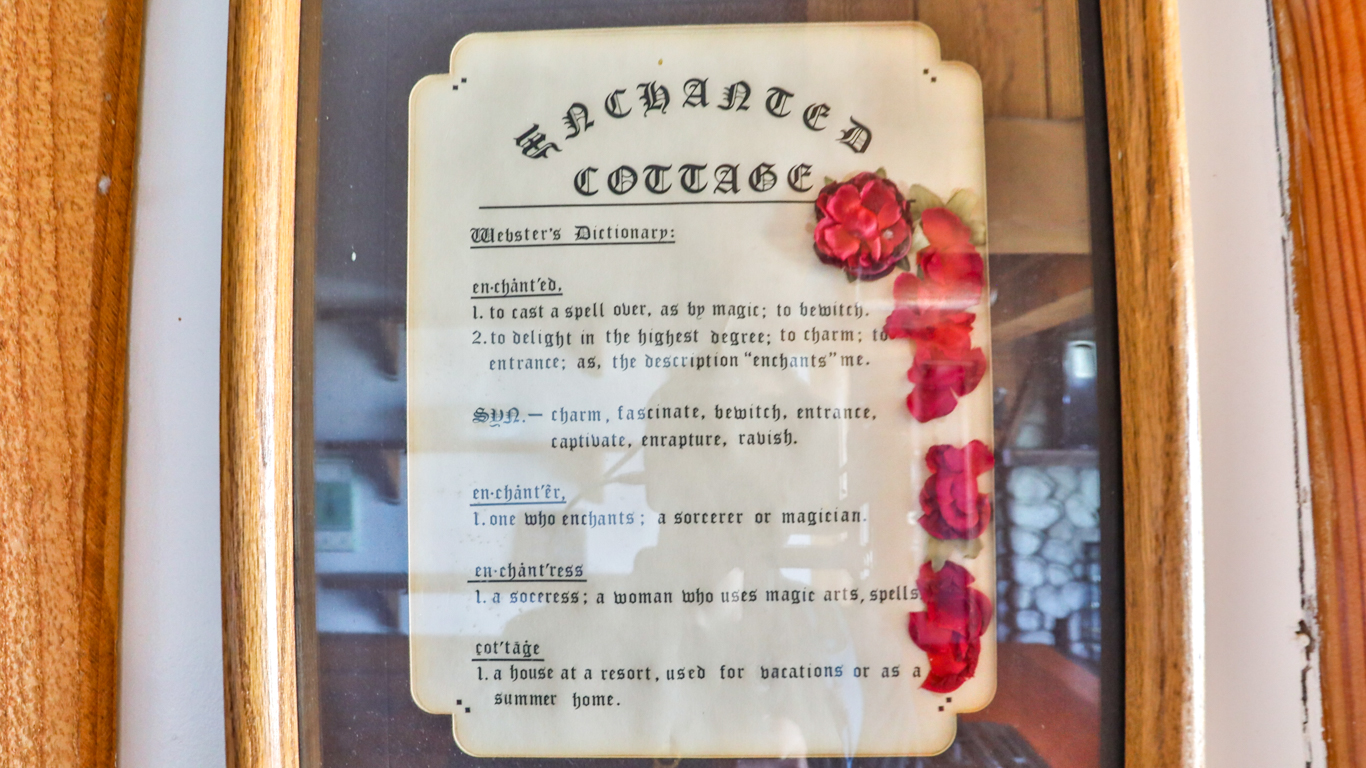 ENCHANTED
COTTAGE
Webster's Dictionary:
en·chȧnt′ed,
1. to cast a spell over, as by magic; to bewitch.
2. to delight in the highest degree; to charm; to
entrance; as, the description "enchants" me.
SYN.— charm, fascinate, bewitch, entrance,
captivate, enrapture, ravish.
en·chȧnt′ẽr,
1. one who enchants; a sorcerer or magician.
en·chȧnt′ress
1. a soceress; a woman who uses magic arts, spells
cot′tāġe
1. a house at a resort, used for vacations or as a
summer home.